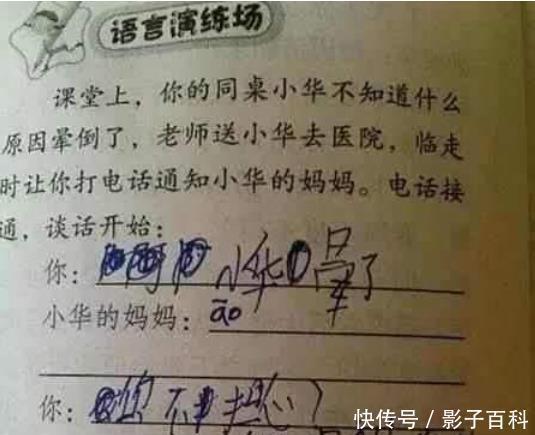 语言演练场
课堂上，你的同桌小华不知道什么
原因晕倒了，老师送小华去医院，临走
时让你打电话通知小华的妈妈。电话接
通，谈话开始：
你：小华晕了
小华的妈妈：āo
你：你不担心？
快传号／影子百科